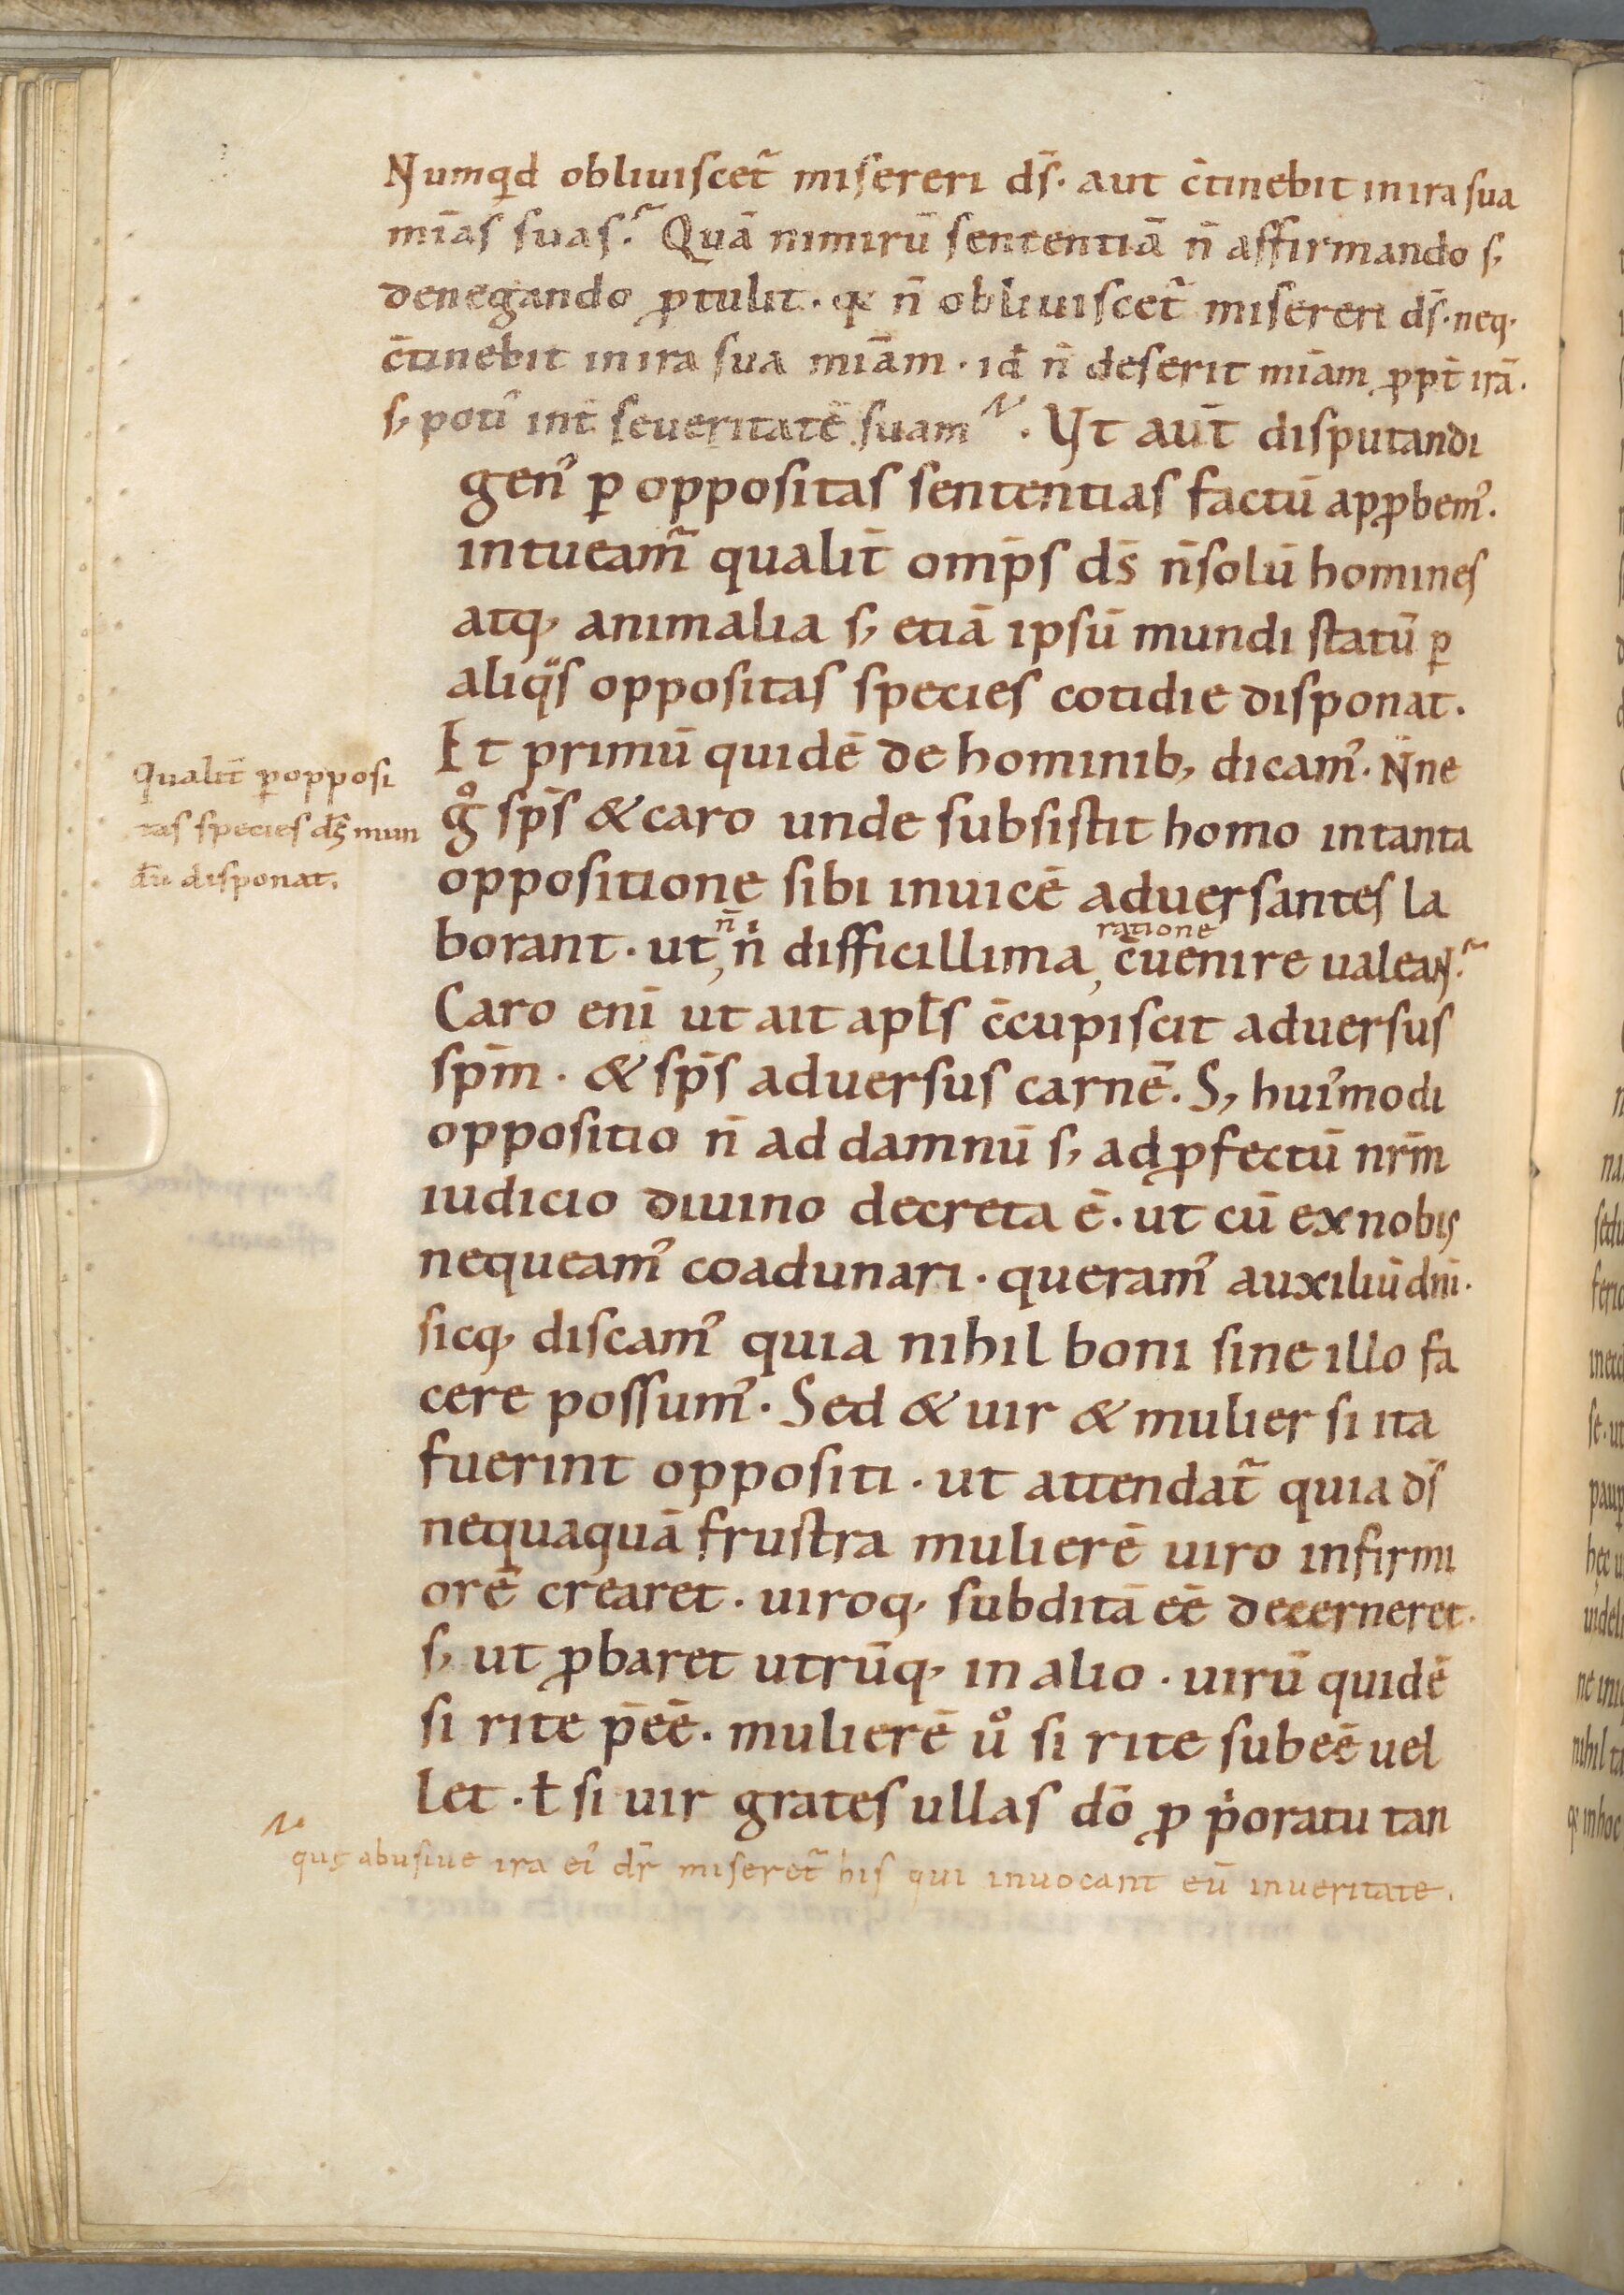 Numqd obliuiscet᷑ misereri ds̄. aut c̄tinebit in ira sua
mīas suas. Quā nimirū sententiā n̄ affirmando s;
denegando ꝓtulit. qꝛ n̄ obliuiscet᷑ misereri ds̄. neq.
c̄tinebit in ira sua mīam. id̄ n̄ deserit mīam ꝓpt̄ irā.
s; poti᾽ int̄ seueritatē suam. Vt aut̄ disputandi
gen᾽ ꝑ oppositas sententias factū apꝓbem᾽.
intueam᷑ qualit̄ omp̄s ds̄ n̄ solū homines
atq; animalia s; etiā ipsū mundi statū ꝑ
aliqͣs oppositas species cotidie disponat.
Et primū quidē de hominib; dicam᾽. Nͦne
gͦ sps̄ & caro unde subsistit homo in tanta
Qualit̄ ꝑ opposi
tas species ds̄ mun
dū disponat.
oppositione sibi inuicē aduersantes la
n̄ ratione
borant. ut, n̄ difficillima, c̄uenire ualeaN᷑.
Caro enī ut ait apl̄s c̄cupiscit aduersus
spm̄. & sps̄ aduersus carnē. S; hui᾽modi
oppositio n̄ ad damnū s; ad ꝓfectū nrm̄
iudicio diuino decreta ē. ut cū ex nobis
nequeam᾽ coadunari. queram᾽ auxiliū dnī.
sicq; discam᾽ quia nihil boni sine illo fa
cere possum᾽. Sed & uir & mulier si ita
fuerint oppositi. ut attendat᷑ quia ds̄
nequaquā frustra mulierē uiro infirmi
orē crearet. uiroq; subditā eē decerneret.
s; ut ꝓbaret utrūq; in alio. uirū quidē
si rite p̄eē. mulierē uͦ si rite subeē uel
let. ł si uir grates ullas dō ꝓ pͥoratu tan
quę abusiue ira ei᾽ dr̄ miseret᷑ his qui inuocant eū in ueritate.